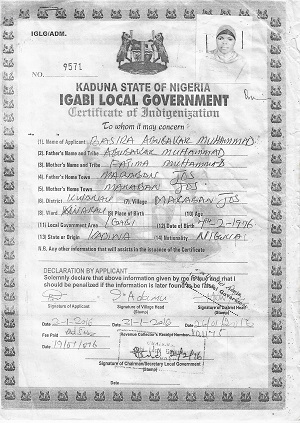 IGLG/ADM.
NO. 9571
KADUNA STATE OF NIGERIA
IGABI LOCAL GOVERNMENT
Certificate of Indigenization
To whom it may concern
(1). Name of Applicant BASIRA ABUBAKAR MUHAMMAD
(2). Father's Name and Tribe ABUBAKAR MUHAMMAD
(3). Mother's Name and Tribe FATIMA MUHAMMAD
(4). Father's Home Town MARABAN JOS
(5). Mother's Home Town MARABAN JOS
(6). District KWARAU (7). Village MARABAN JOS
(8). Ward KWARAU (9) Place of Birth (10) Age
(11). Local Government Area IGABI (12) Date of Birth
(13). State or Origin KADUNA (14) Nationality NIGERIA
N.B. Any other information that will assists in the issuance of the Certificate
DECLARATION BY APPLICANT
Solemnly declare that above information given by me is true and that I
should be penalized if the information is later found to be false.
Signature of Applicant Signature of Village Head Signature of District Head
(Stamp) (Stamp)
Date Date 21-1-2016 Date
Fee Paid Revenue Collector's Receipt Number
Date
Signature of Chairman/Secretary Local Government
(Stamp)